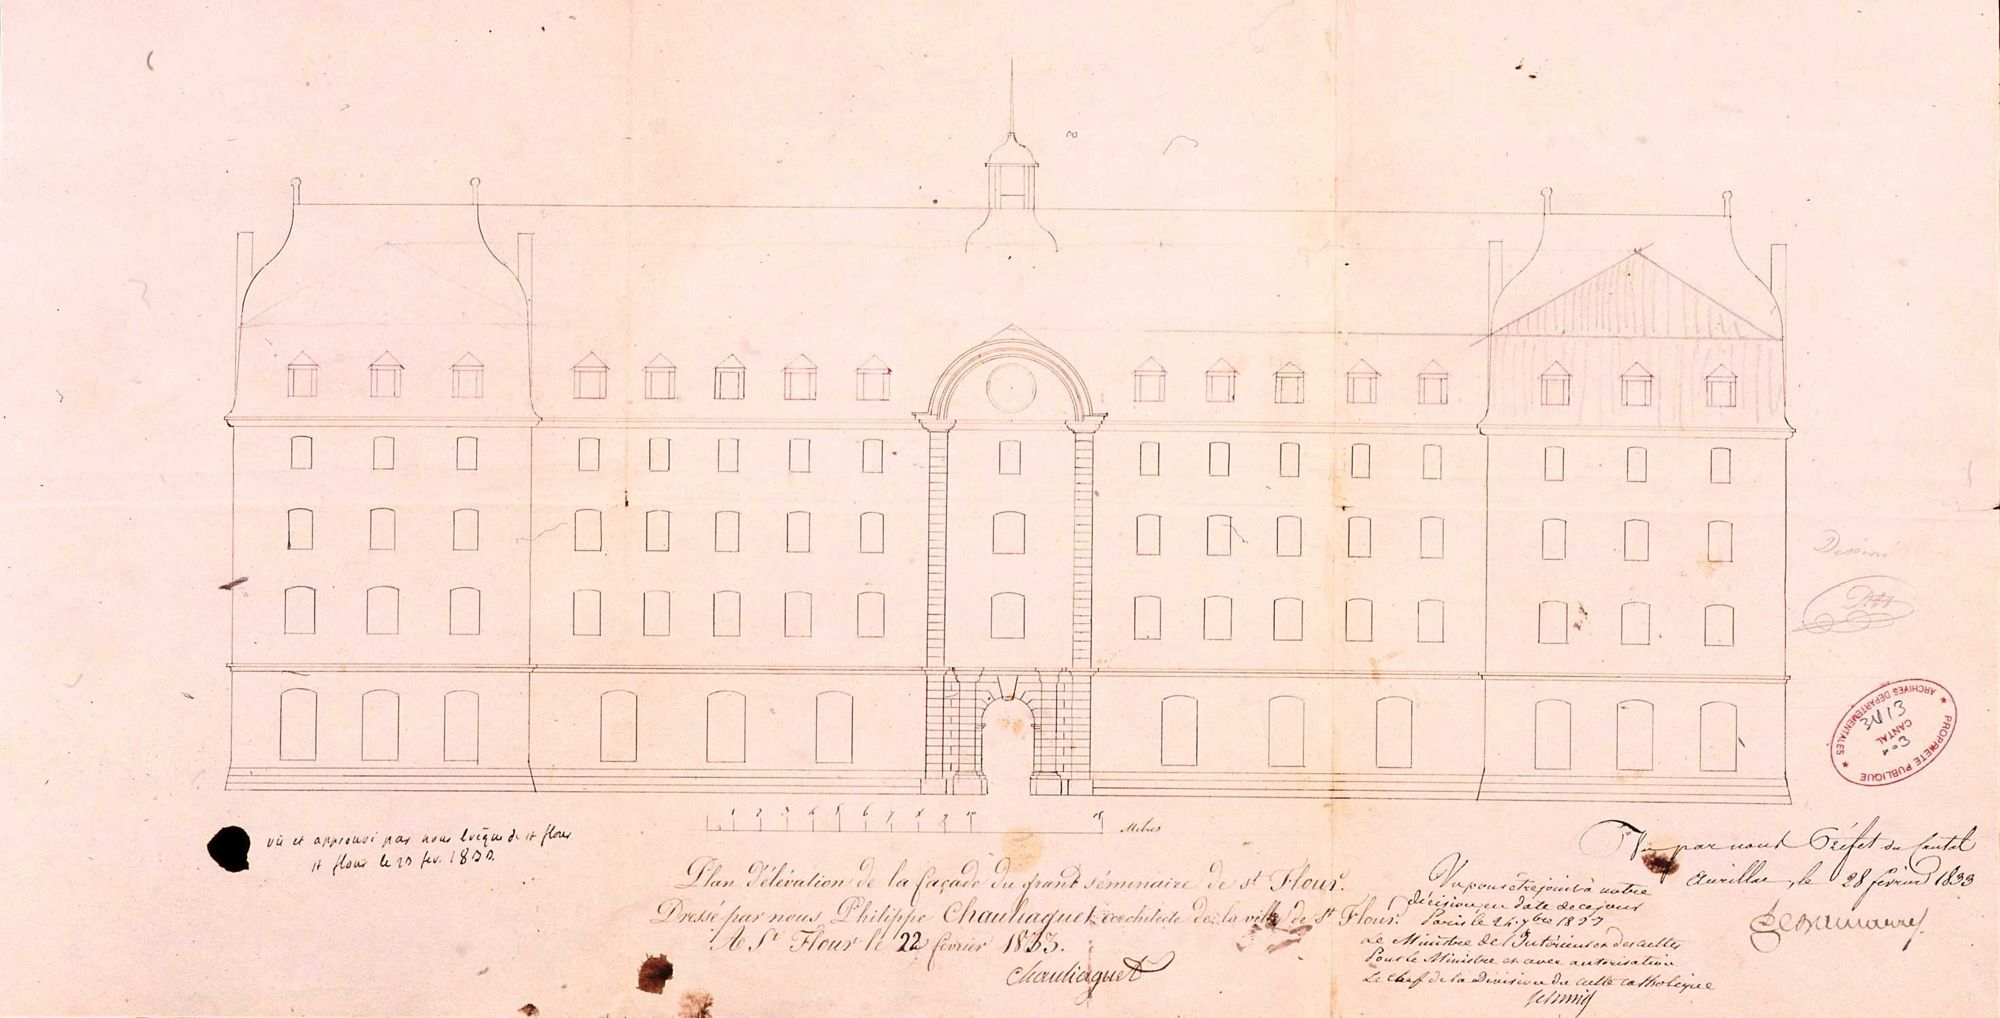 1 2 3 4 5 6 7 8 9 10 15 Mètres
vû et approuvé par nous Evêque de st flour
st flour le 23 fev. 1833.
Plan d'élévation de la façade du grand séminaire de St Flour.
Dressé par nous Philippe Chauliaguet architecte de la ville de St Flour.
A St Flour le 22 février 1833.
Chauliaguet
Vu pour être joint à notre
décision en date de ce jour
Paris le 24 7bre 1833
Le Ministre de l'Intérieur et des cultes
Pour le Ministre et avec autorisation
Le chef de la Division du culte catholique
Schmid
Vu par nous Préfet du Cantal
Aurillac, le 28 février 1833
Dessiné
PROPRIETE PUBLIQUE
ARCHIVES DEPARTEMENTALES
CANTAL
3V13
n°3